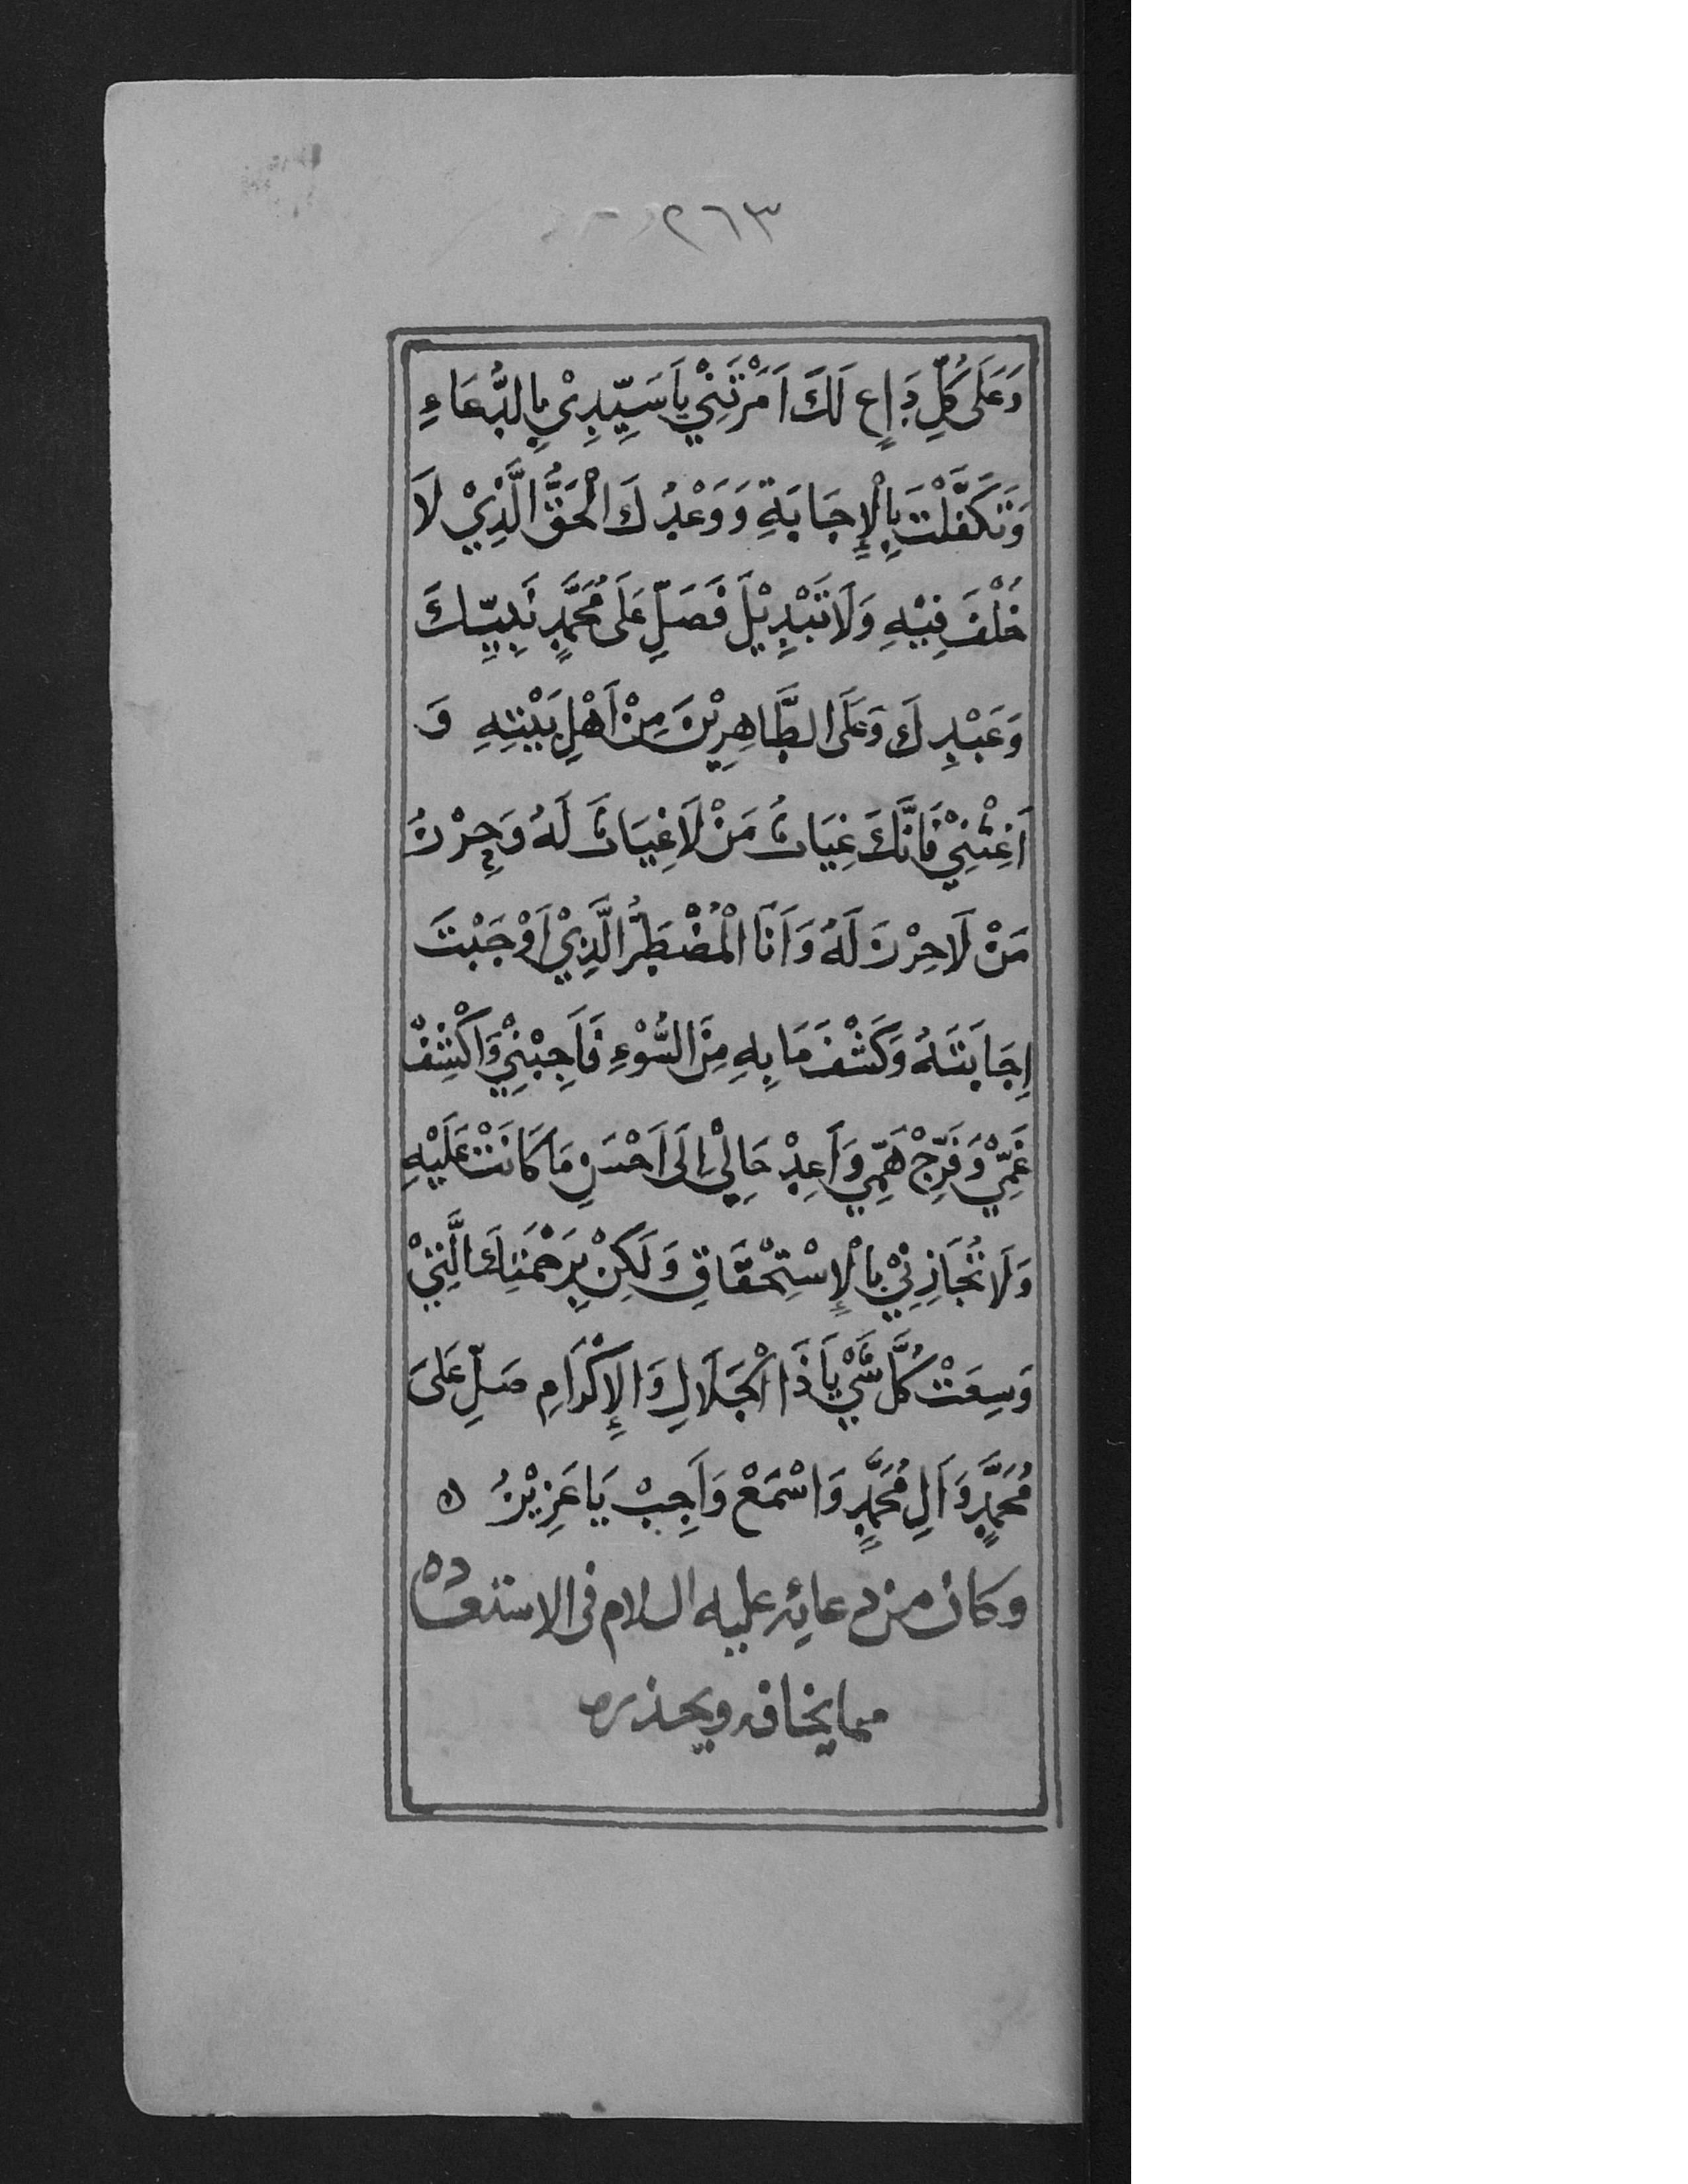 ٢٦٣
وَعَلَى كُلِّ دَاعٍ لَكَ اَمَرْتَنِيْ يَا سَيِّدِيْ بِالدُّعَاءِ
وَتَكَفَّلْتَ بِالْإِجَابَةِ وَوَعْدُكَ الْحَقُّ الَّذِيْ لَا
خُلْفَ فِيْهِ وَلَا تَبْدِيْلَ فَصَلِّ عَلَى مُحَمَّدٍ نَبِيِّكَ
وَعَبْدِكَ وَعَلَى الطَّاهِرِيْنَ مِنْ اَهْلِ بَيْتِهِ وَ
اَغِثْنِيْ فَاِنَّكَ غِيَاثُ مَنْ لَا غِيَاثَ لَهُ وَحِرْزُ
مَنْ لَا حِرْزَ لَهُ وَاَنَا الْمُضْطَرُّ الَّذِيْ اَوْجَبْتَ
اِجَابَتَهُ وَكَشْفَ مَا بِهِ مِنَ السُّوْءِ فَاَجِبْنِيْ وَاكْشِفْ
غَمِّيْ وَفَرِّجْ هَمِّيْ وَاَعِدْ حَالِيْ اِلَى اَحْسَنِ مَا كَانَتْ عَلَيْهِ
وَلَا تُجَازِنِيْ بِالْإِسْتِحْقَاقِ وَلَكِنْ بِرَحْمَتِكَ الَّتِيْ
وَسِعَتْ كُلَّ شَيْءٍ يَا ذَا الْجَلَالِ وَالْإِكْرَامِ صَلِّ عَلَى
مُحَمَّدٍ وَآلِ مُحَمَّدٍ وَاسْمَعْ وَاَجِبْ يَا عَزِيْزُ ه
وكان من دعائه عليه السلام فى الاستعاذه
مما يخافه ويحذره